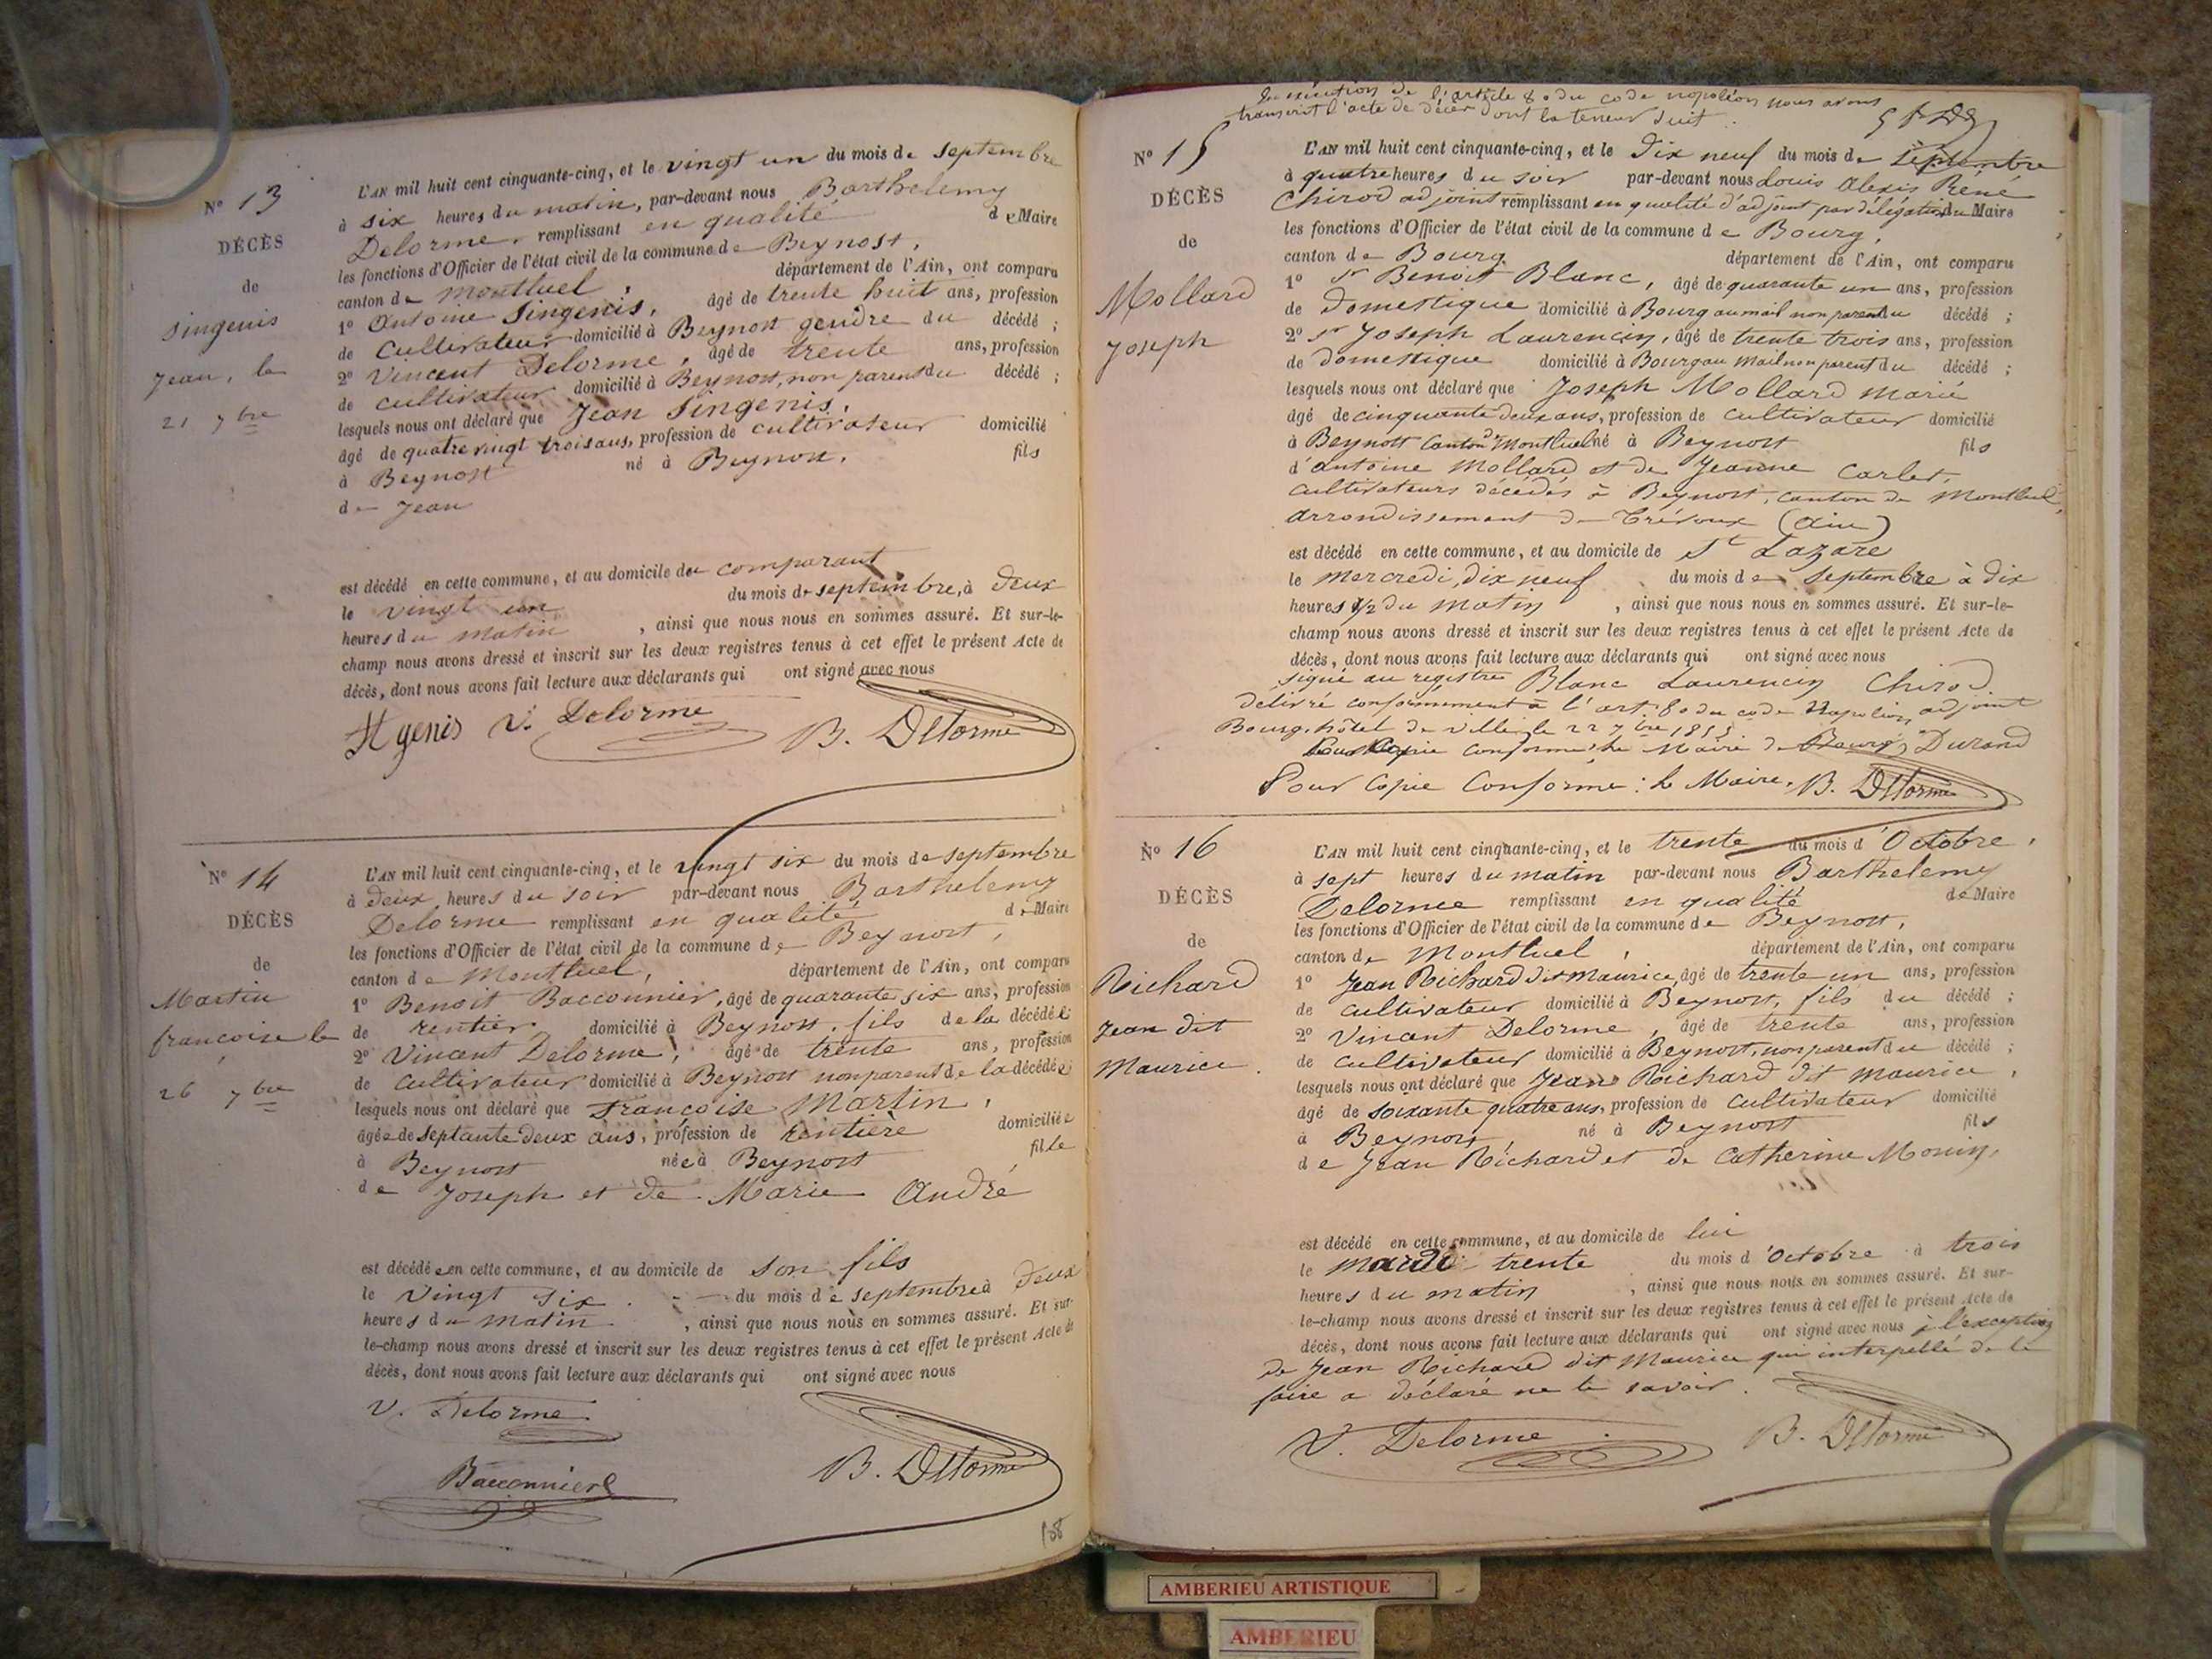 N° 13
DÉCÈS
de
Singenis
Jean, le
21 7bre
L'AN mil huit cent cinquante-cinq, et le vingt un du mois de septembre
à six heures du matin, par-devant nous Barthelemy
Delorme, remplissant en qualité de Maire
les fonctions d'Officier de l'état civil de la commune de Beynost,
canton de Montluel, département de l'Ain, ont comparu
1° Antoine Singenis, âgé de trente huit ans, profession
de cultivateur domicilié à Beynost gendre du décédé ;
2° Vincent Delorme, âgé de trente ans, profession
de cultivateur domicilié à Beynost, non parent du décédé ;
lesquels nous ont déclaré que Jean Singenis,
âgé de quatre vingt trois ans, profession de cultivateur domicilié
à Beynost né à Beynost. fils
de Jean
est décédé en cette commune, et au domicile du comparant
le vingt un du mois de septembre, à deux
heures du matin, ainsi que nous nous en sommes assuré. Et sur-le-
champ nous avons dressé et inscrit sur les deux registres tenus à cet effet le présent Acte de
décès, dont nous avons fait lecture aux déclarants qui ont signé avec nous
St genis V. Delorme B. Delorme
N° 14
DÉCÈS
de
Martin
francoise le
26 7bre
L'AN mil huit cent cinquante-cinq, et le vingt six du mois de septembre
à deux heures du soir par-devant nous Barthelemy
Delorme remplissant en qualité de Maire
les fonctions d'Officier de l'état civil de la commune de Beynost,
canton de Montluel, département de l'Ain, ont comparu
1° Benoit Bacconnier, âgé de quarante six ans, profession
de rentier domicilié à Beynost. fils de la décédée
2° Vincent Delorme, âgé de trente ans, profession
de cultivateur domicilié à Beynost non parent de la décédée
lesquels nous ont déclaré que Françoise Martin,
âgée de septante deux ans, profession de rentière domiciliée
à Beynost née à Beynost fille
de Joseph et de Marie André
est décédée en cette commune, et au domicile de son fils
le vingt six du mois de septembre à deux
heures du matin, ainsi que nous nous en sommes assuré. Et sur-
le-champ nous avons dressé et inscrit sur les deux registres tenus à cet effet le présent Acte de
décès, dont nous avons fait lecture aux déclarants qui ont signé avec nous
V. Delorme
Bacconnier B. Delorme
108
En exécution de l'article 80 du code napoléon nous avons
transcrit l'acte de décès dont la teneur suit :
N° 15
DÉCÈS
de
Mollard
Joseph
L'AN mil huit cent cinquante-cinq, et le dix neuf du mois de septembre
à quatre heures du soir par-devant nous Louis Alexis Réné
Chirod adjoint remplissant en qualité d'adjoint par délégation du Maire
les fonctions d'Officier de l'état civil de la commune de Bourg,
canton de Bourg département de l'Ain, ont comparu
1° Sr Benoit Blanc, âgé de quarante un ans, profession
de domestique domicilié à Bourg au mail non parent du décédé ;
2° Sr Joseph Laurencin, âgé de trente trois ans, profession
de domestique domicilié à Bourg au Mail non parent du décédé ;
lesquels nous ont déclaré que Joseph Mollard marié
âgé de cinquante deux ans, profession de cultivateur domicilié
à Beynost canton de Montluel né à Beynost fils
d'antoine Mollard et de Jeanne Carlet,
cultivateurs décédés à Beynost, canton de Montluel,
arrondissement de Trévoux (Ain)
est décédé en cette commune, et au domicile de St Lazare
le mercredi, dix neuf du mois de septembre à dix
heures 1/2 du matin, ainsi que nous nous en sommes assuré. Et sur-le-
champ nous avons dressé et inscrit sur les deux registres tenus à cet effet le présent Acte de
décès, dont nous avons fait lecture aux déclarants qui ont signé avec nous
signé au registre Blanc Laurencin Chirod
délivré conformément à l'art. 80 du code Napoléon adjoint
Bourg, hôtel de ville, le 22 7bre 1855
Pour Copie Conforme : le Maire de Bourg, Durand
Pour Copie Conforme : le Maire, B. Delorme
N° 16
DÉCÈS
de
Richard
Jean dit
Maurice.
L'AN mil huit cent cinquante-cinq, et le trente du mois d'Octobre,
à sept heures du matin par-devant nous Barthelemy
Delorme remplissant en qualité de Maire
les fonctions d'Officier de l'état civil de la commune de Beynost,
canton de Montluel, département de l'Ain, ont comparu
1° Jean Richard dit Maurice, âgé de trente un ans, profession
de cultivateur domicilié à Beynost, fils du décédé ;
2° Vincent Delorme, âgé de trente ans, profession
de cultivateur domicilié à Beynost, non parent du décédé ;
lesquels nous ont déclaré que Jean Richard dit Maurice,
âgé de soixante quatre ans, profession de cultivateur domicilié
à Beynost, né à Beynost fils
de Jean Richard et de Catherine Monin,
est décédé en cette commune, et au domicile de lui
le mardi trente du mois d'Octobre à trois
heures du matin, ainsi que nous nous en sommes assuré. Et sur-
le-champ nous avons dressé et inscrit sur les deux registres tenus à cet effet le présent Acte de
décès, dont nous avons fait lecture aux déclarants qui ont signé avec nous à l'exception
de Jean Richard dit Maurice qui interpellé de le
faire a déclaré ne le savoir.
V. Delorme B. Delorme
AMBERIEU ARTISTIQUE
AMBERIEU